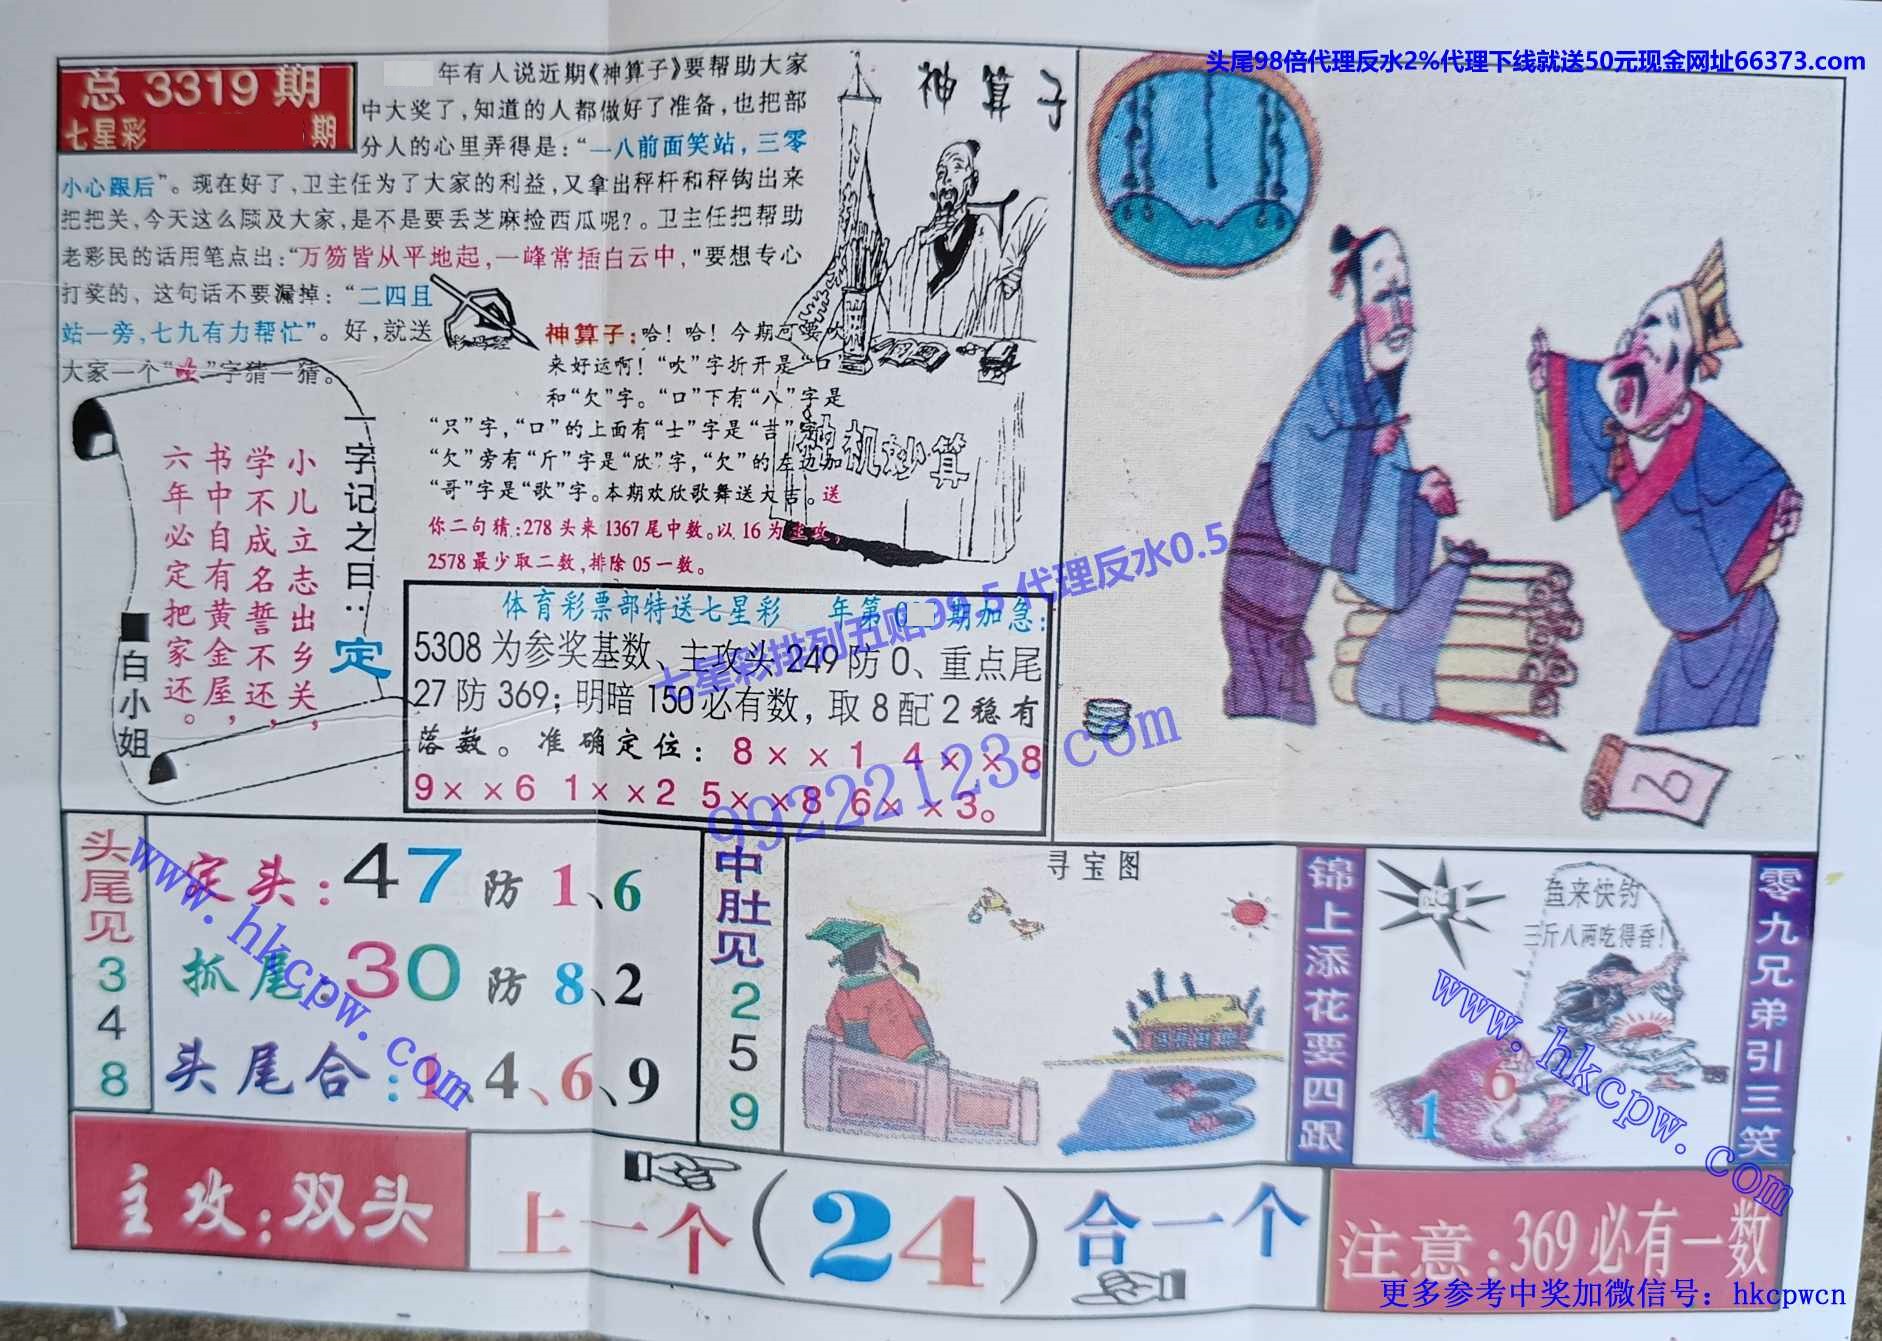 头尾98倍代理反水2%代理下线就送50元现金网址66373.com
总 3319 期
七星彩 期
年有人说近期《神算子》要帮助大家
中大奖了，知道的人都做好了准备，也把部
分人的心里弄得是：“一八前面笑站，三零
小心跟后”。现在好了，卫主任为了大家的利益，又拿出秤杆和秤钩出来
把把关，今天这么顾及大家，是不是要丢芝麻捡西瓜呢？。卫主任把帮助
老彩民的话用笔点出：“万笏皆从平地起，一峰常插白云中，"要想专心
打奖的，这句话不要漏掉：“二四且
站一旁，七九有力帮忙”。好，就送
大家一个“吹”字猜一猜。
神算子
神算子：哈！哈！今期可要吹
来好运啊！“吹”字折开是“口”
和“欠”字。“口”下有“八”字是
“只”字，“口”的上面有“士”字是“吉”字，
“欠”旁有“斤”字是“欣”字，“欠”的左边加
“哥”字是“歌”字。本期欢欣歌舞送大吉。送
你二句猜：278头来1367尾中数。以16为主攻，
2578最少取二数，排除05一数。
神机妙算
一字记之曰：
定
小儿立志出乡关，
学不成名誓不还，
书中自有黄金屋，
六年必定把家还。
白小姐
体育彩票部特送七星彩 年第0 期加急：
5308为参奖基数、主攻头249防0、重点尾
27防369；明暗150必有数，取8配2稳有
落数。准确定位：8××1 4××8
9××6 1××2 5××8 6××3。
七星彩排列五贴99.5 代理反水0.5
99222123.com
头尾见348
定头：47防1、6
抓尾：30防8、2
头尾合：1、4、6、9
www.hkcpw.com
中肚见259
寻宝图
锦上添花要四跟
鱼来快钓
三斤八两吃得香！
1 6
www.hkcpw.com
零九兄弟引三笑
主攻：双头
上一个（24）合一个
注意：369必有一数
更多参考中奖加微信号：hkcpwcn